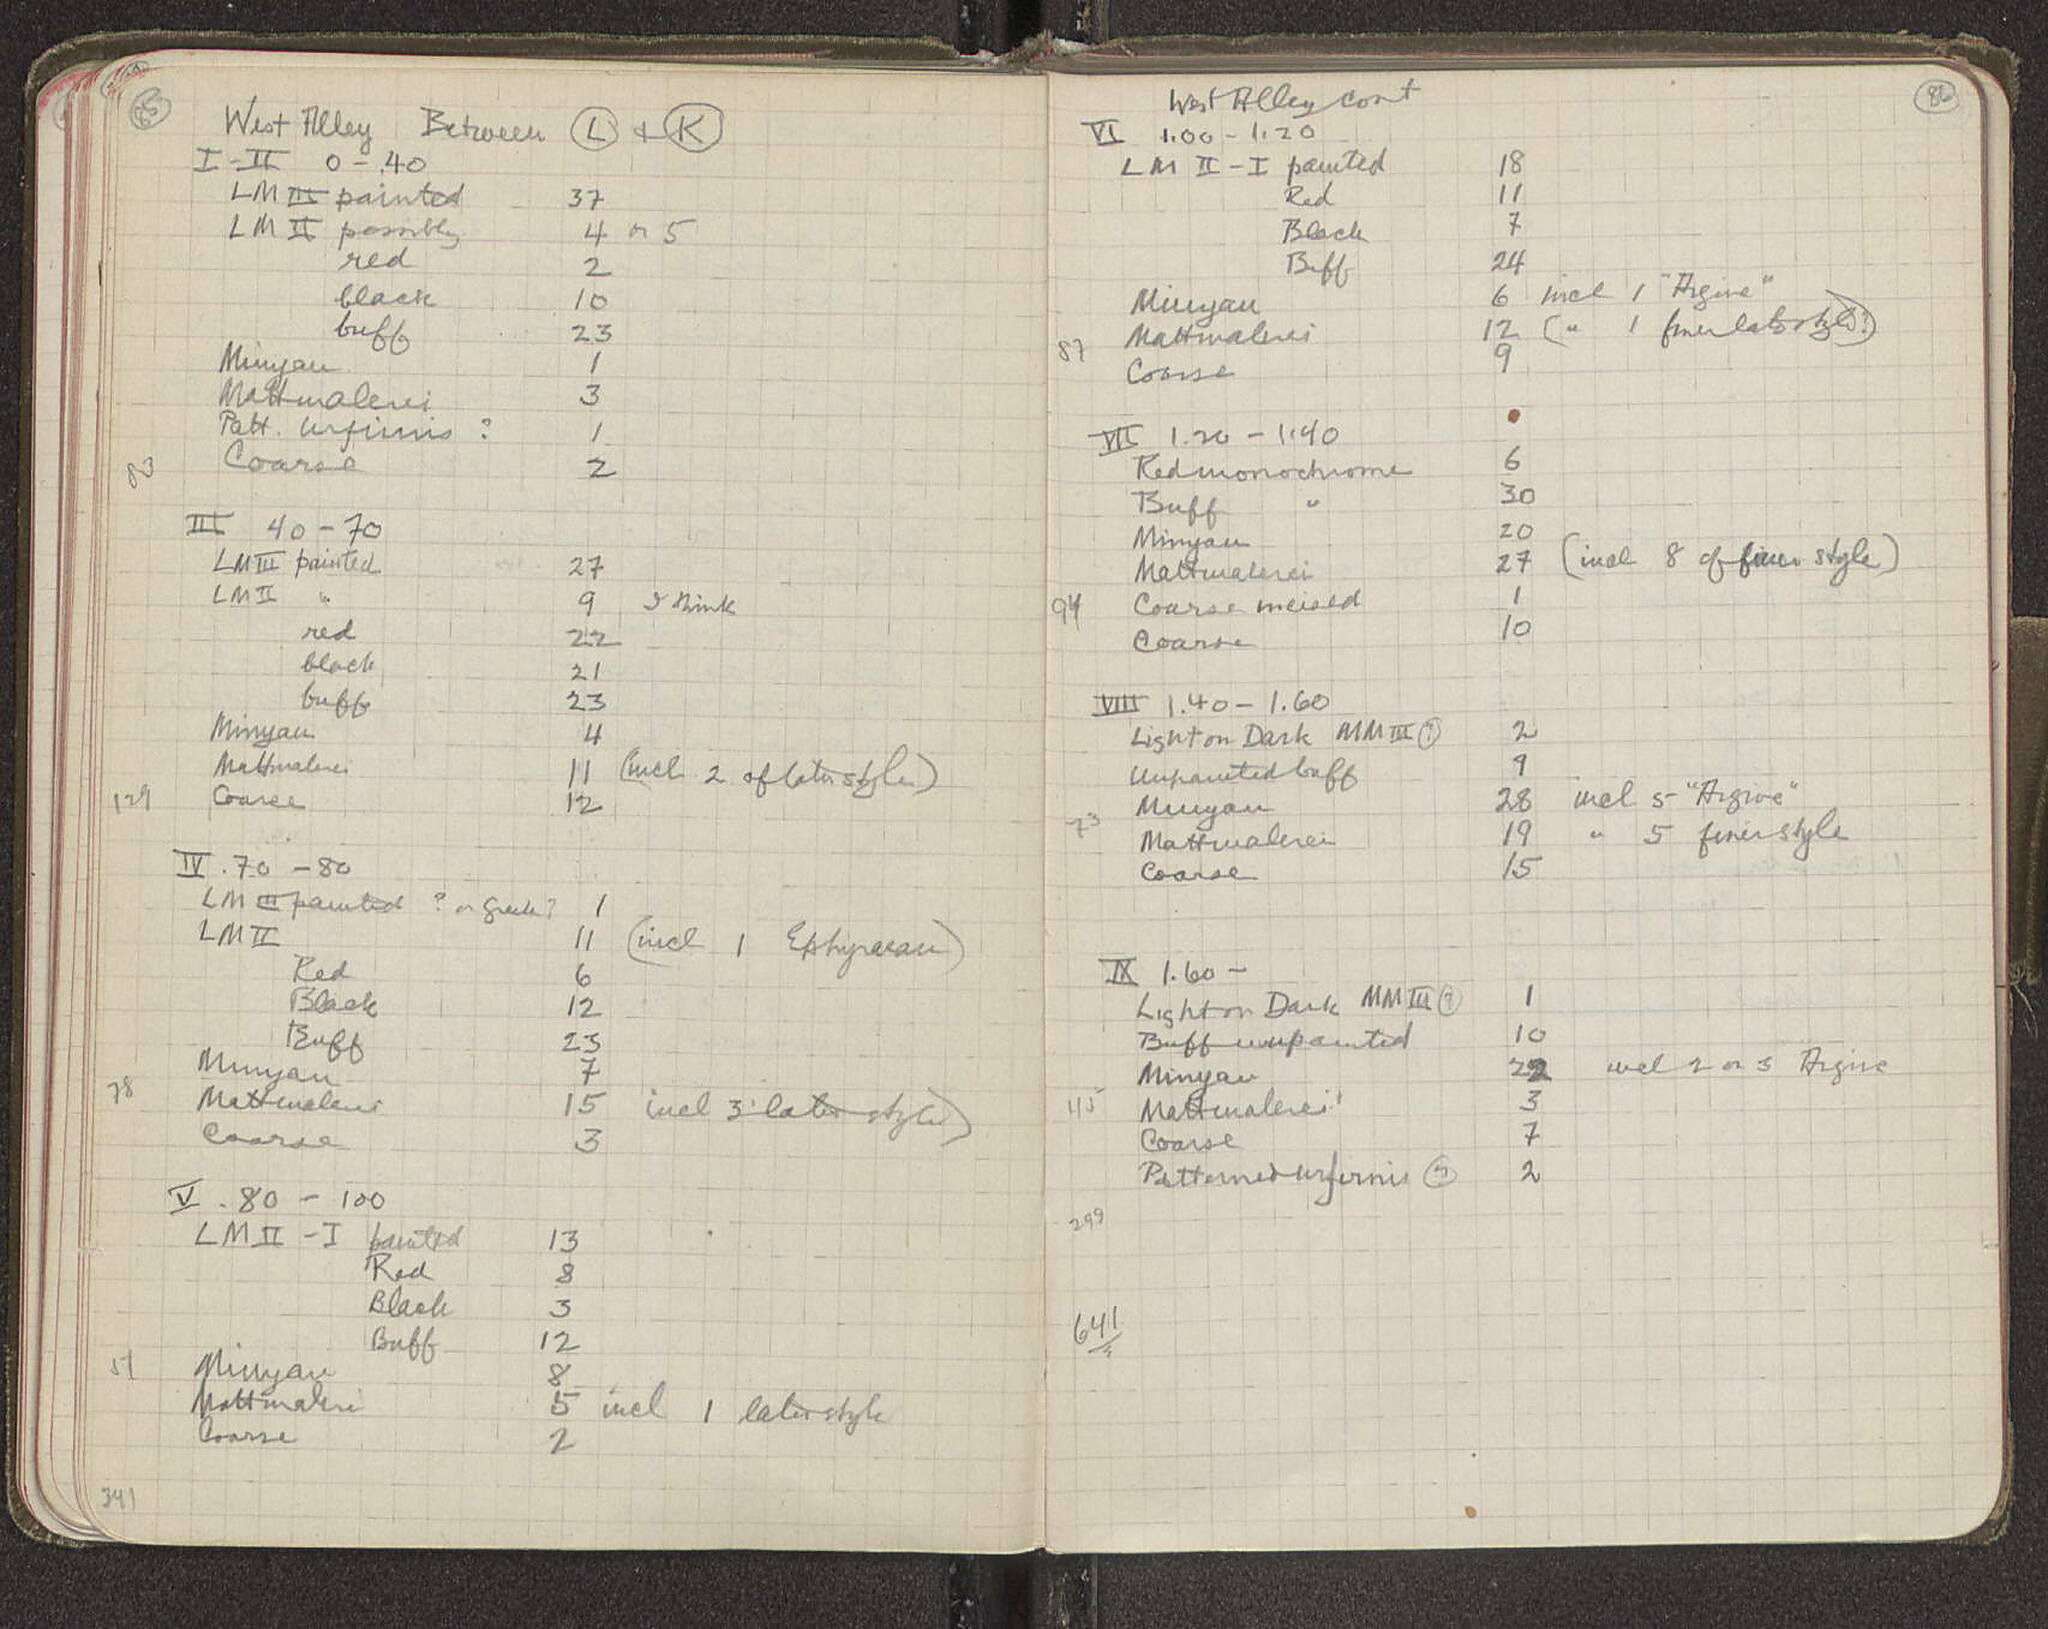 85
West Alley Between L + K
I-II 0 - .40
LM III painted 37
LM II possibly 4 or 5
red 2
black 10
buff 23
Minyan 1
Mattmalerei 3
Patt. Urfirnis ? 1
83 Coarse 2
III 40 - 70
LM III painted 27
LM II " 9 I think
red 22
black 21
buff 23
Minyan 4
Mattmalerei 11 (incl. 2 of later style)
129 Coarse 12
IV .70 - 80
LM III painted ? or Greek? 1
LM II 11 (incl 1 Ephyraean)
Red 6
Black 12
Buff 23
Minyan 7
78 Mattmalerei 15 incl 3 later style)
Coarse 3
V .80 - 100
LM II - I painted 13
Red 8
Black 3
Buff 12
51 Minyan 8
Mattmalerei 5 incl 1 later style
Coarse 2
341
86
West Alley cont
VI 1.00 - 1.20
LM II - I painted 18
Red 11
Black 7
Buff 24
Minyan 6 incl 1 "Argive"
Mattmalerei 12 (" 1 finer later style?)
87 Coarse 9
VII 1.20 - 1.40
Red monochrome 6
Buff " 30
Minyan 20
Mattmalerei 27 (incl 8 of finer style)
94 Coarse incised 1
Coarse 10
VIII 1.40 - 1.60
Light on Dark MM III (?) 2
Unpainted buff 9
Minyan 28 incl 5 "Argive"
73 Mattmalerei 19 " 5 finer style
Coarse 15
IX 1.60 -
Light on Dark MM III (?) 1
Buff unpainted 10
Minyan 22 incl 2 or 3 Argive
45 Mattmalerei 3
Coarse 7
Patterned urfirnis (?) 2
299
641